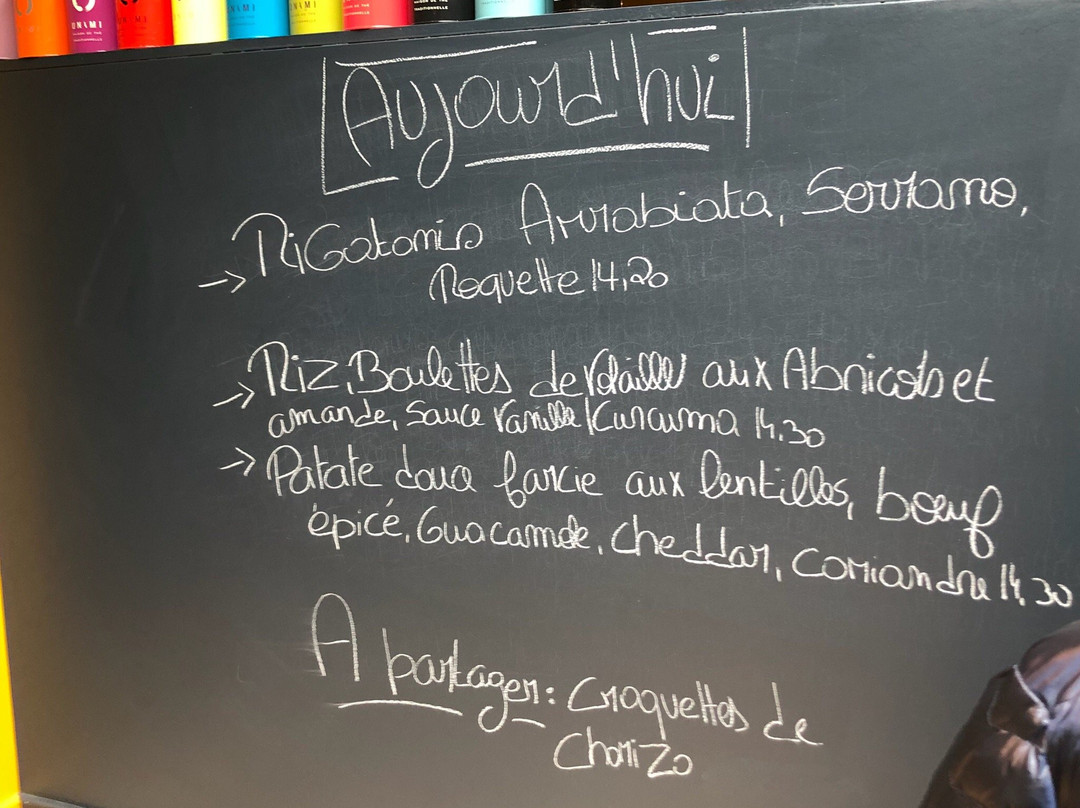 UNAMI
UNAMI
MAISON DE THÉ
TRADITIONNELLE
Aujourd'hui
→ RiGatonis Arrabiata, Serrano,
Roquette 14,20
→ Riz, Boulettes de Volaille aux Abricots et
amande, Sauce Vanille/Curcuma 14.30
→ Patate douce farcie aux lentilles, bœuf
épicé, Guacamole, Cheddar, Coriandre 14.30
A partager: Croquettes de
ChoriZo